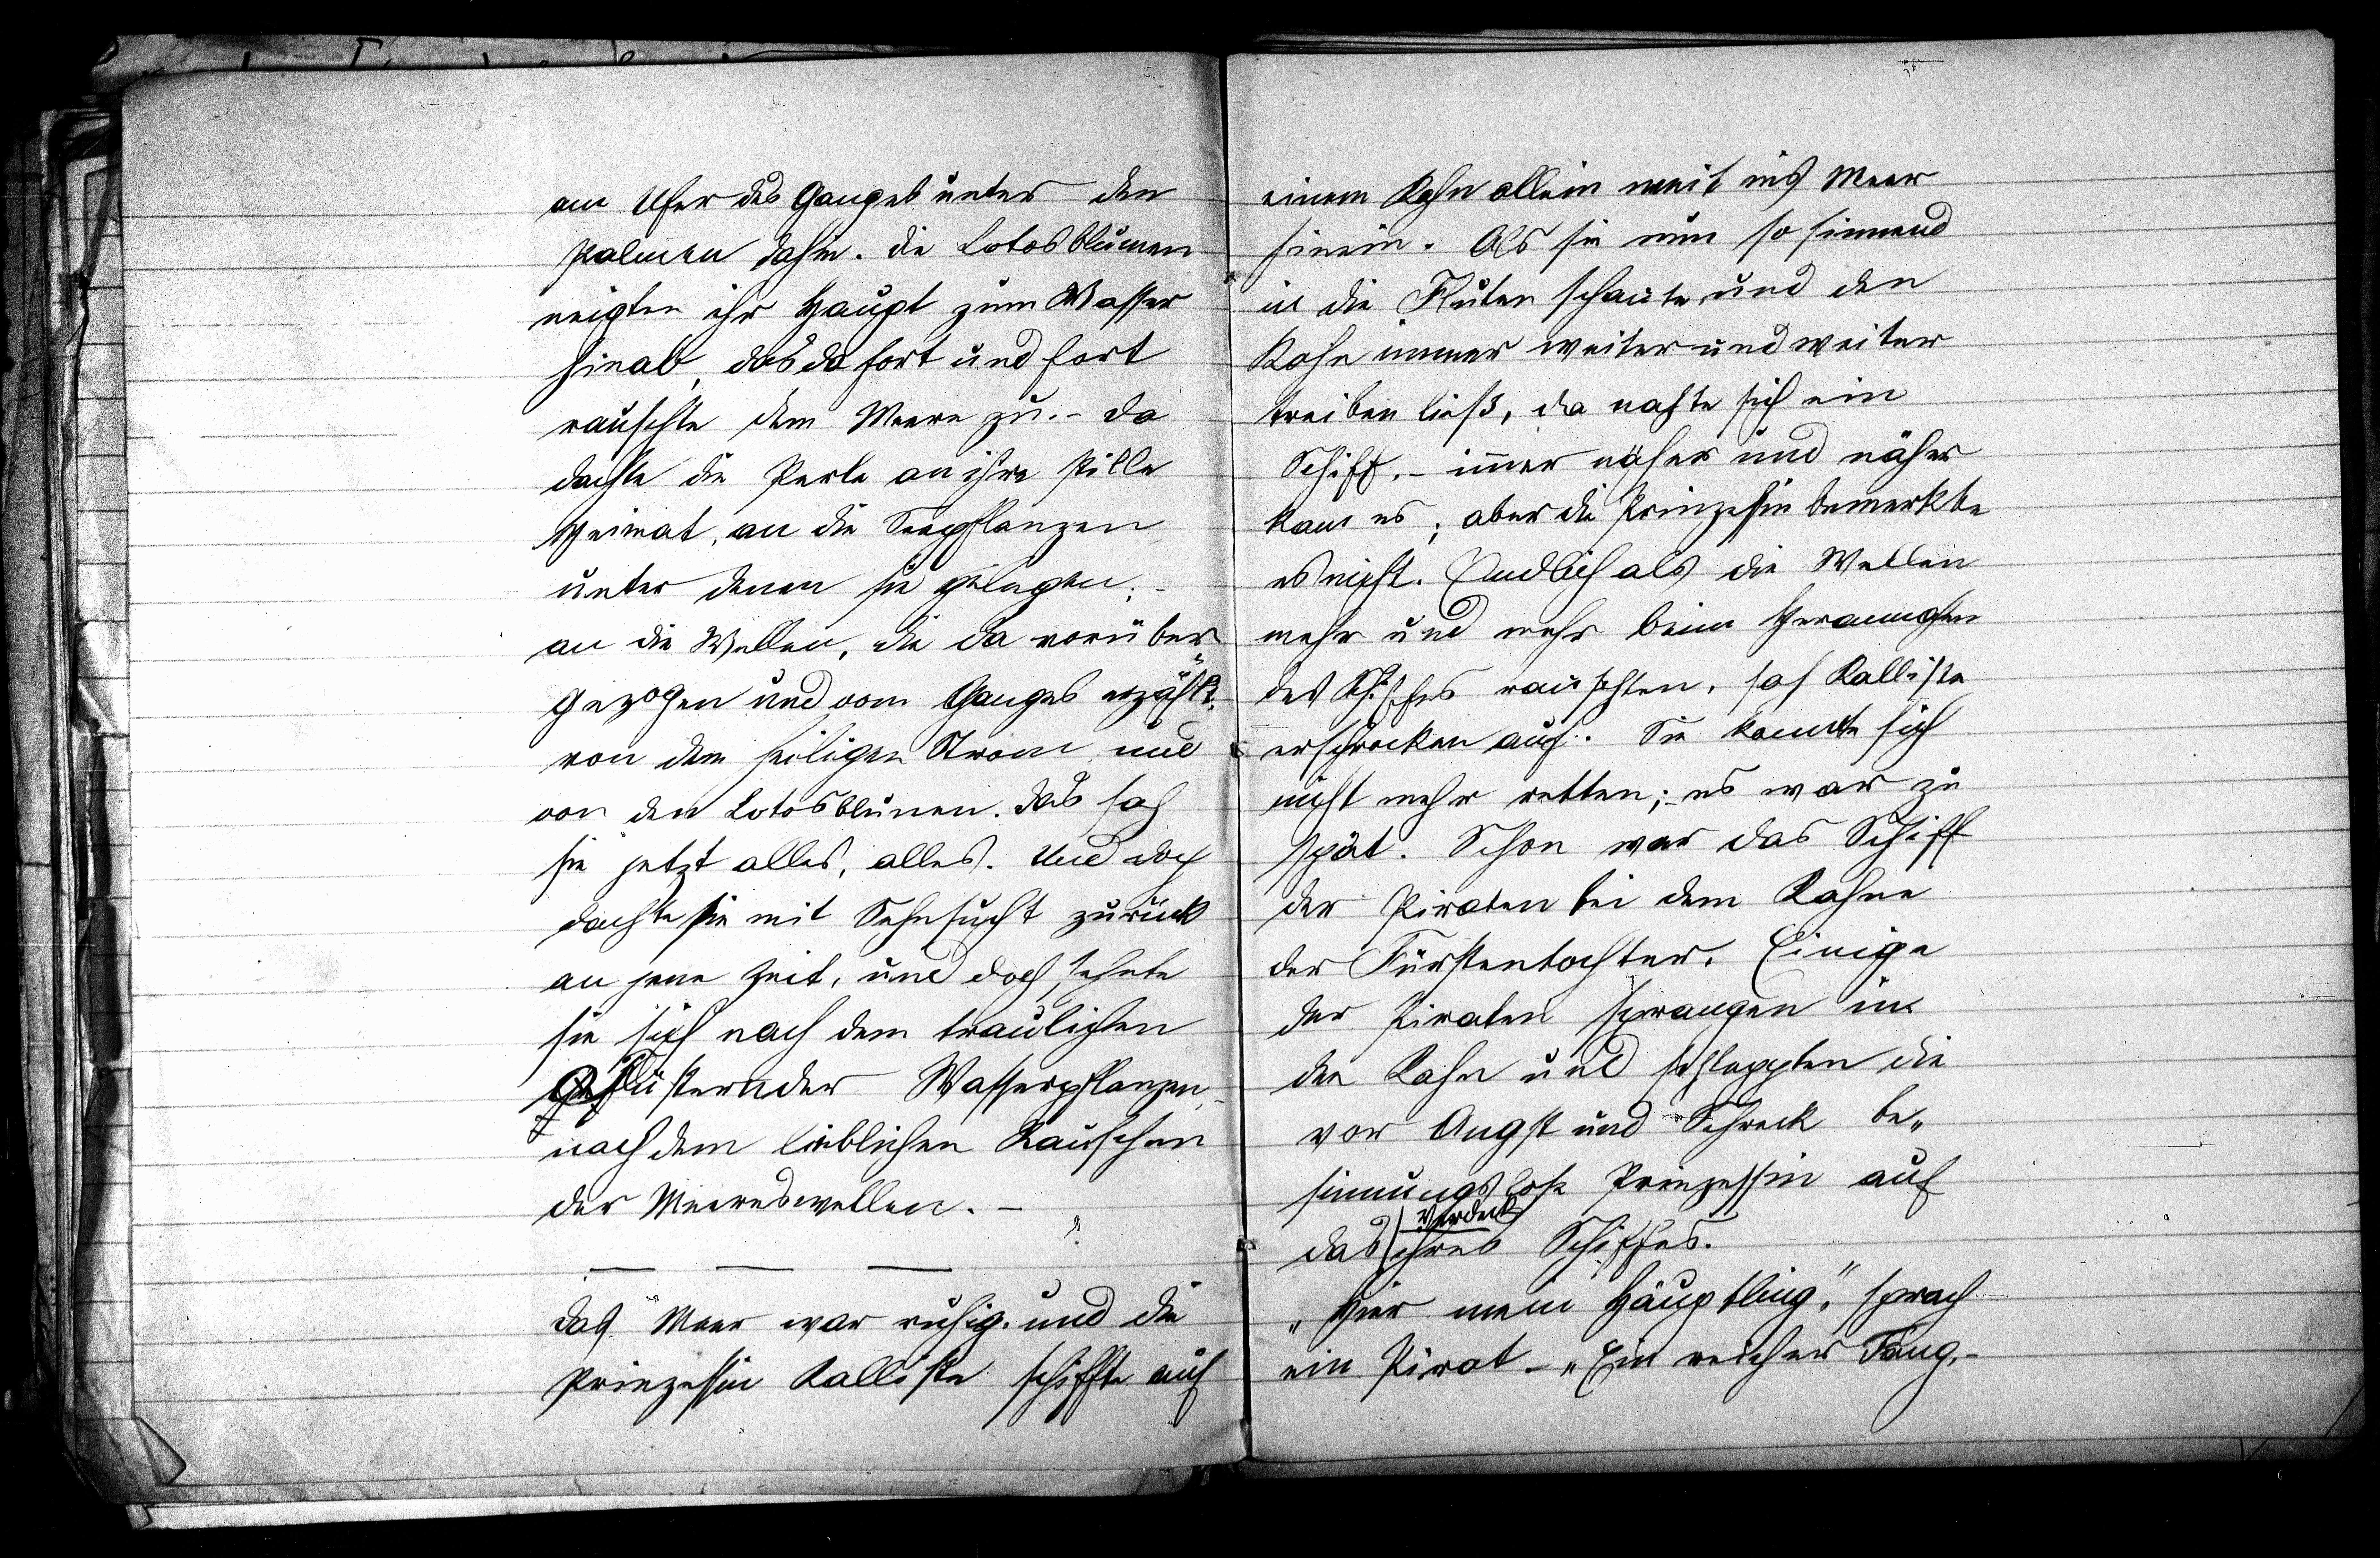 am Ufer des Ganges unter den
Palmen dahin. Die Lotosblumen
neigten ihr Haupt zum Wasser
hinab, das da fort und fort
rauschte dem Meere zu. - Da
dachte die Perle an ihre stille
Heimat, an die Seepflanzen
unter denen sie gelegen; -
an die Wellen, die da vorüber„
gezogen und vom Ganges erzählt,
von dem heiligen Strom und
von den Lotosblumen. Das sah
sie jetzt alles, alles. Und doch
dachte sie mit Sehnsucht zurück
an jene Zeit, und doch sehnte
sie sich nach dem traulichen
Geflüster der Wasserpflanzen,
nach dem lieblichen Rauschen
der Meereswellen. -
— — —
Das Meer war ruhig. und die
Prinzessin Kalliste schiffte auf
einem Kahn allein weit ins Meer
hinein. Als sie nun so sinnend
in die Fluten schaute und den
Kahn immer weiter und weiter
treiben ließ, da nahte sich ein
Schiff. - immer näher und näher
kam es; aber die Prinzessin bemerkte
es nicht. Endlich als die Wellen
mehr und mehr beim Herannahen
des Schiffes rauschten, sah Kalliste
erschrocken auf. Sie konnte sich
nicht mehr retten; - es war zu
spät. Schon war das Schiff
der Piraten bei dem Kahne
der Fürstentochter. Einige
der Piraten sprangen in
den Kahn und schleppten die
vor Angst und Schreck be„
sinnungslose Prinzessin auf
das Verdeck ihres Schiffes.
„Hier mein Häuptling," sprach
ein Pirat - „Ein reicher Fang. -